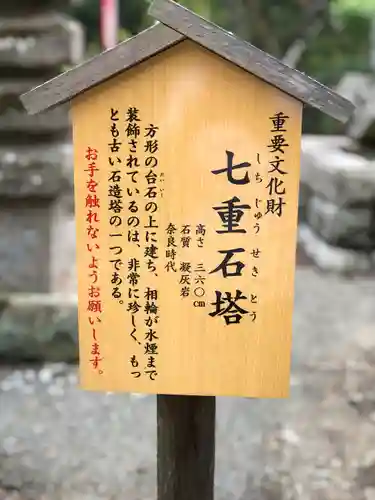 重要文化財
七重石塔
しちじゅうせきとう
高さ 三六〇cm
石質 凝灰岩
奈良時代
方形の台石の上に建ち、相輪が水煙まで
だいいし
装飾されているのは、非常に珍しく、もっ
とも古い石造塔の一つである。
お手を触れないようお願いします。